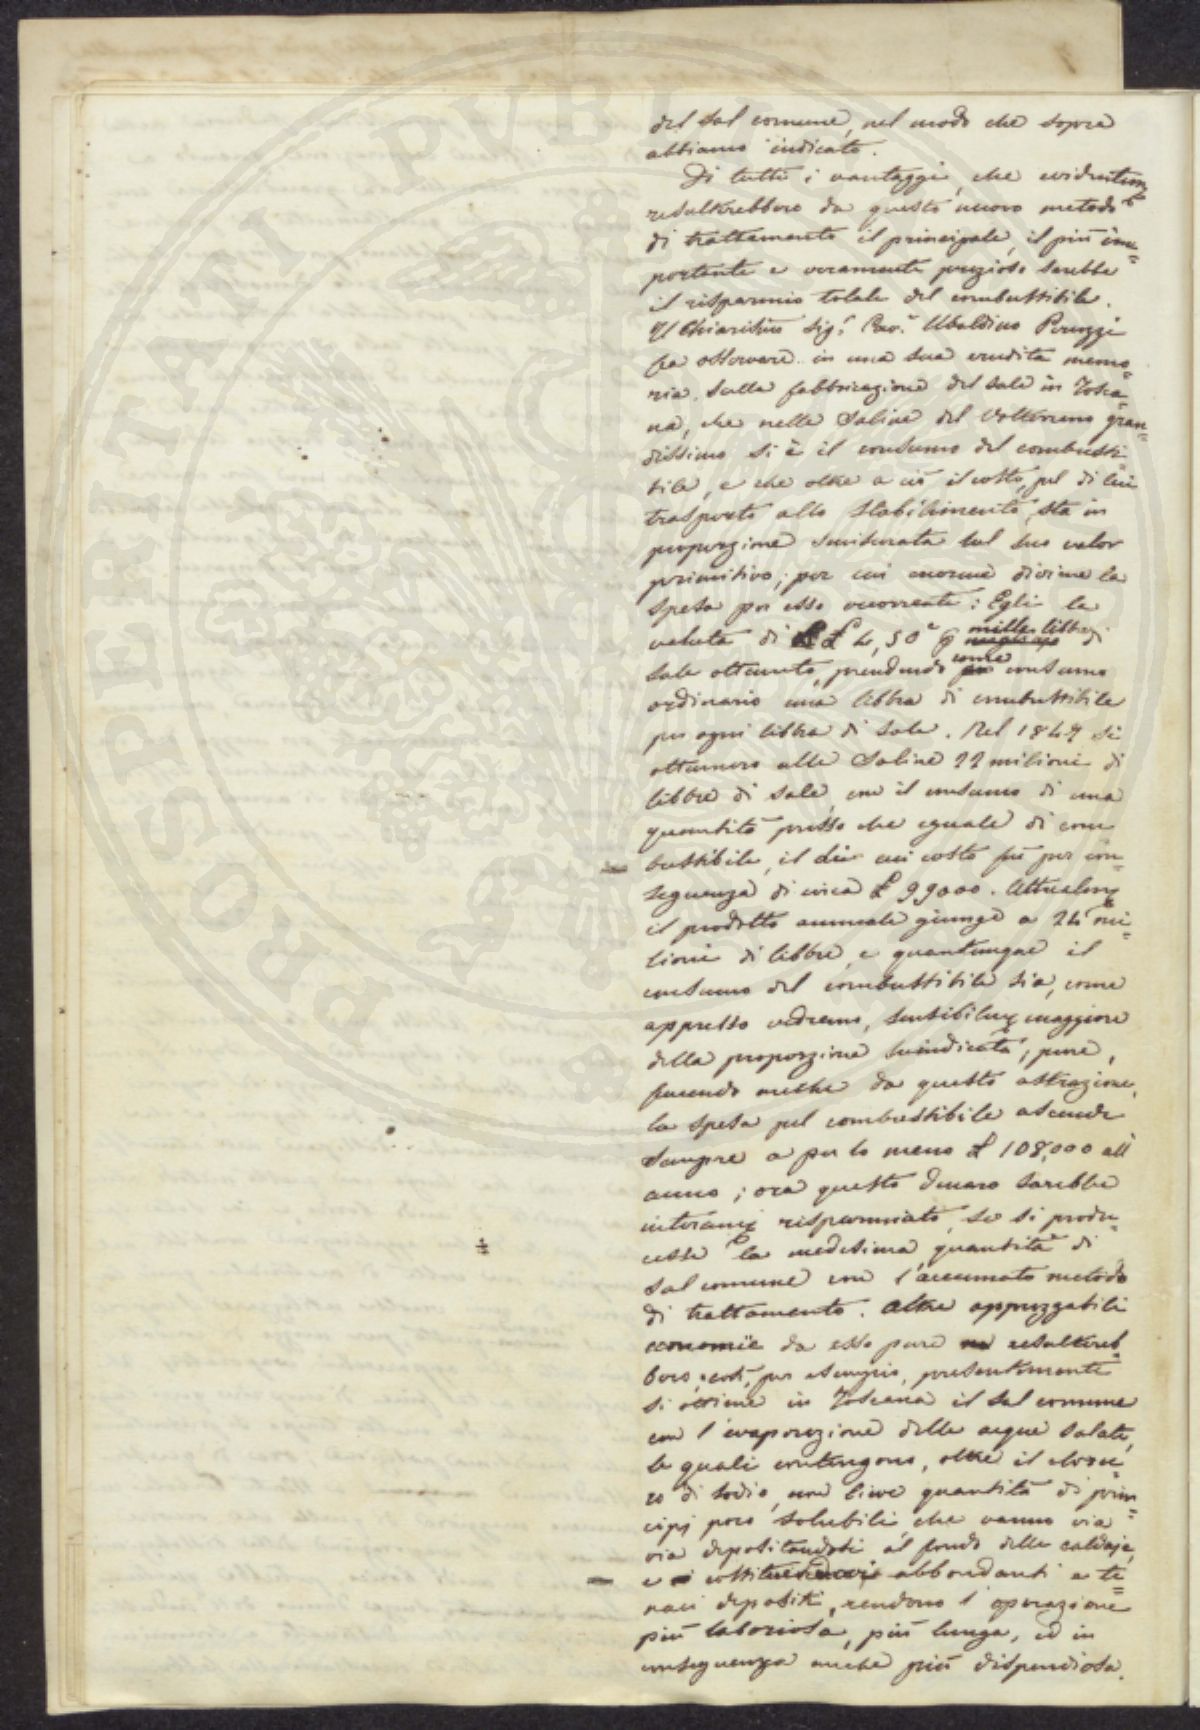 del sal comune, nel modo che sopra
abbiamo indicato.
Di tutti i vantaggi, che evidentem.te
resulterebbero da questo nuovo metodo
di trattamento il principale, il più im=
portante e veramente prezioso sarebbe
il risparmio totale del combustibile.
Il Chiarissimo Sig.r Cav.r Ubaldino Peruzzi
fa osservare in una sua erudita memo=
ria sulla fabbricazione del sale in Tosca=
na, che nelle Saline del Volterrano gran=
dissimo si è il consumo del combusti=
bile, e che oltre a ciò il costo, pel di lui
trasporto allo Stabilimento, sta in
proporzione smisurata sul suo valor
primitivo; per cui enorme diviene la
spesa per esso occorrente: Egli la
valuta di £ 4,50 mille libbre di
sale ottenuto, prendendo come consumo
ordinario una libbra di combustibile
per ogni libbra di sale. Nel 1847 si
ottennero alle Saline 22 milioni di
libbre di sale, con il consumo di una
quantità presso che eguale di com
bustibile, il di cui costo fu per con=
seguenza di circa £ 99000. Attualm.te
il prodotto annuale giunge a 24 mi=
lioni di libbre, e quantunque il
consumo del combustibile sia, come
appresso vedremo, sensibilm.te maggiore
della proporzione suindicata; pure,
facendo anche da questo astrazione,
la spesa pel combustibile ascende
sempre a per lo meno £ 108,000 all'
anno; ora questo denaro sarebbe
interam.te risparmiato, se si produ=
cesse la medesima quantità di
sal comune con l'accennato metodo
di trattamento. Altre apprezzabili
economie da esso pure resultereb=
bero; così, per esempio, presentemente
si ottiene in Toscana il sal comune
con l'evaporazione delle acque salate,
le quali contengono, oltre il cloru=
ro di sodio, una lieve quantità di prin=
cipj poco solubili, che vanno via
via depositandosi al fondo delle caldaje,
e costituendovi abbondanti e te=
naci depositi, rendono l'operazione
più laboriosa, più lunga, ed in
conseguenza anche più dispendiosa.
PROSPERITATI PVBLICAE